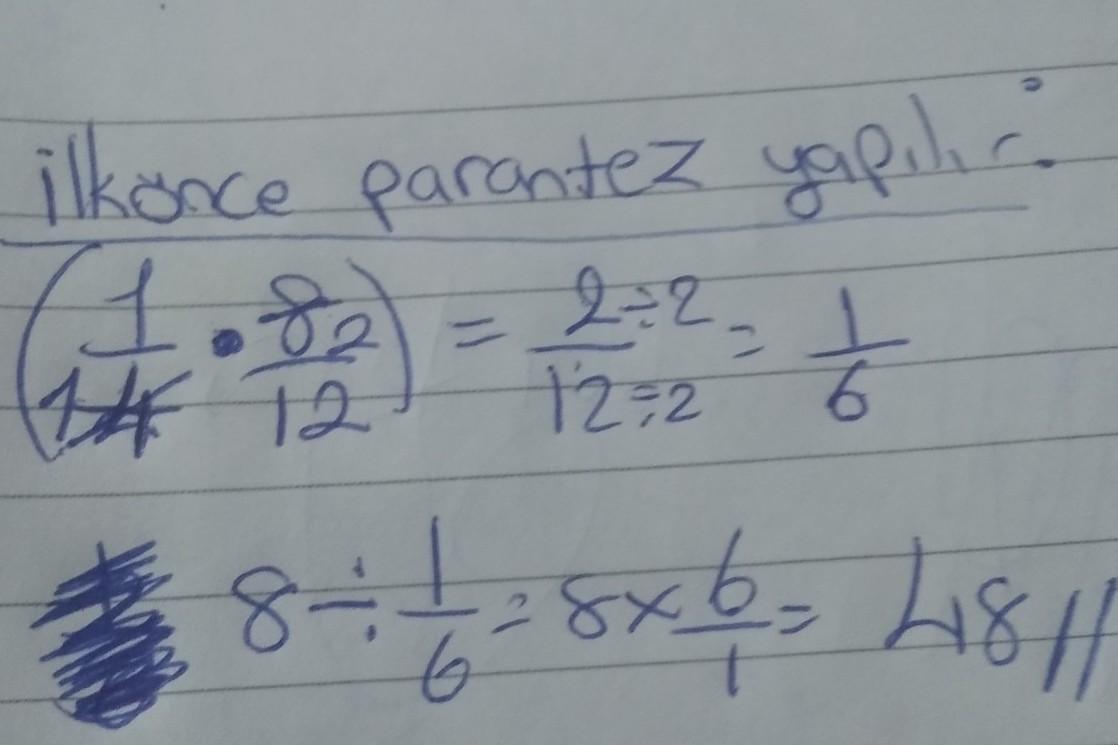 ilkönce parantez yapılır:
(1/14 • 8 2/12) = 2÷2/12÷2 = 1/6
8 ÷ 1/6 = 8 x 6/1 = 48 //